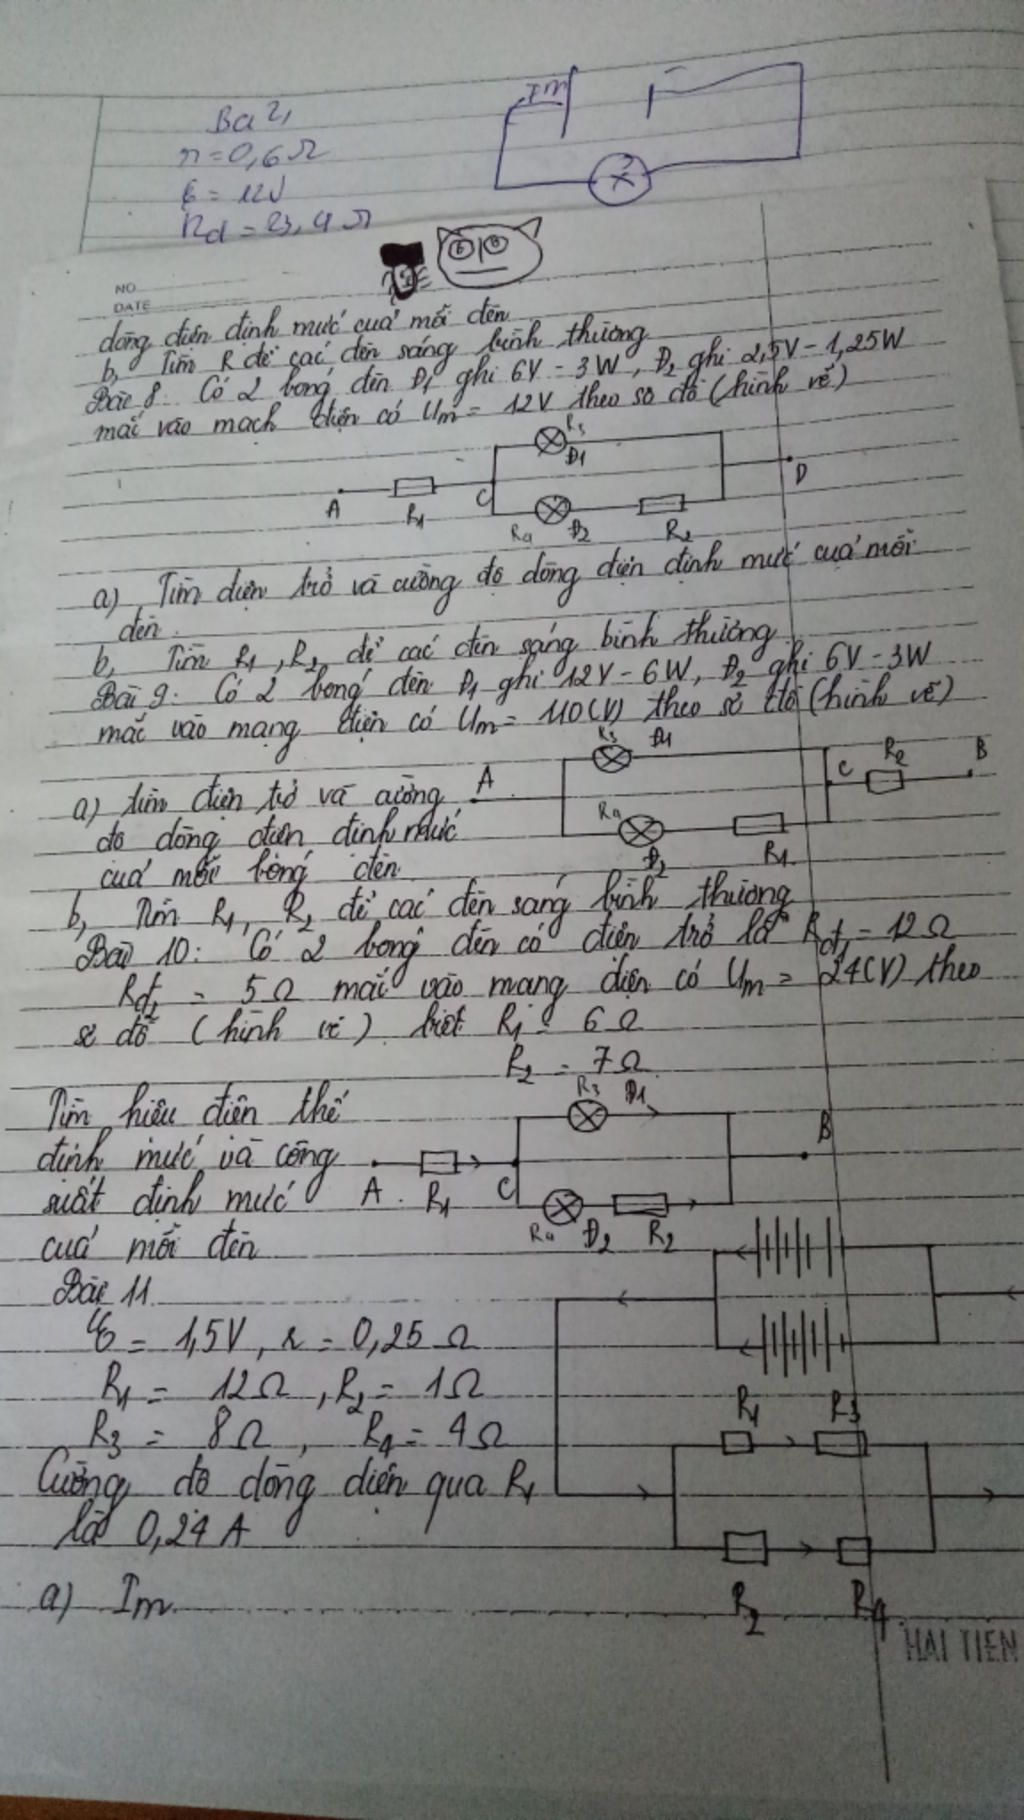 Bài 2,
r = 0,6 Ω
Im
ξ = 12V
Rd = 23,4 Ω
NO
DATE
dòng điện định mức của mỗi đèn
b, Tìm R để các đèn sáng bình thường
Bài 8: Có 2 bóng đèn Đ1 ghi 6V - 3W, Đ2 ghi 2,5V - 1,25W
mắc vào mạch điện có Um = 12V theo sơ đồ (hình vẽ)
R3
Đ1
A R1 C D
R4 Đ2 R2
a) Tìm điện trở và cường độ dòng điện định mức của mỗi
đèn.
b, Tìm R1, R2 để các đèn sáng bình thường
Bài 9: Có 2 bóng đèn Đ1 ghi 12V - 6W, Đ2 ghi 6V - 3W
mắc vào mạng điện có Um = 110(V) theo sơ đồ (hình vẽ)
R3 Đ1
A C R2 B
R4 Đ2 R1
a) tìm điện trở và cường
độ dòng điện định mức
của mỗi bóng đèn
b, Tìm R1, R2 để các đèn sáng bình thường
Bài 10: Có 2 bóng đèn có điện trở là Rđ1 = 12 Ω
Rđ2 = 5 Ω mắc vào mạng điện có Um = 24(V) theo
sơ đồ (hình vẽ) biết R1 = 6 Ω
R2 = 7 Ω
Tìm hiệu điện thế
định mức và công
suất định mức
của mỗi đèn
R3 Đ1
A R1 C B
R4 Đ2 R2
Bài 11
ξ = 1,5V, r = 0,25 Ω
R1 = 12 Ω, R2 = 1 Ω
R3 = 8 Ω, R4 = 4 Ω
Cường độ dòng điện qua R1
là 0,24 A
a) Im
R1 R3
R2 R4
HAI TIEN